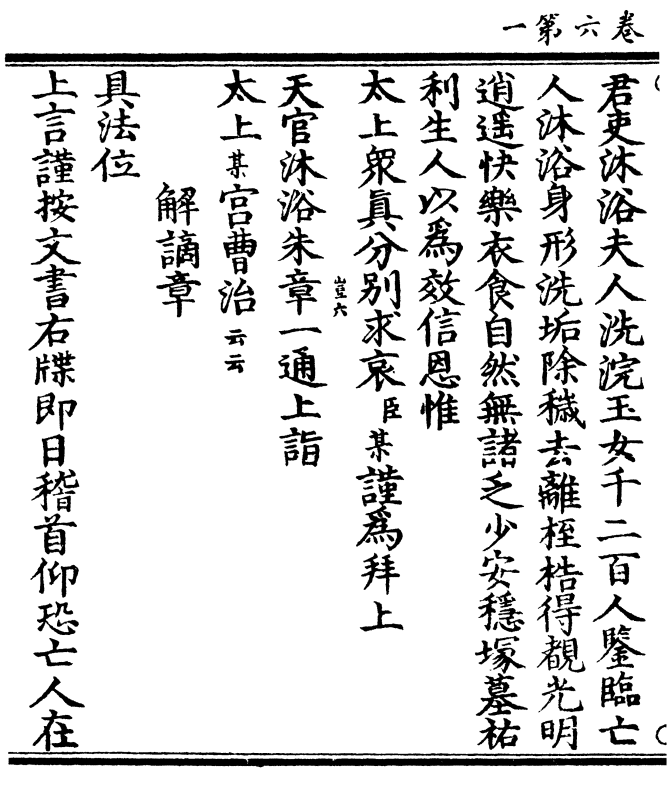 卷六第一
君吏沐浴夫人洗浣玉女千二百人鑒臨亡
人沐浴身形洗垢除穢去離桎梏得覩光明
逍遥快樂衣食自然無諸乏少安穩塚墓祐
利生人以爲效信恩惟
太上衆真分别求哀臣某謹爲拜上
豈六
天官沐浴朱章一通上詣
太上某宫曹治云云
解謫章
具法位
上言謹按文書右牒即日稽首仰恐亡人在